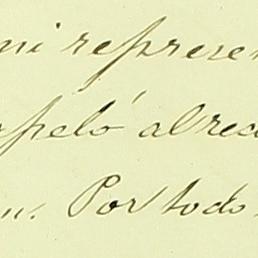 ni represen
apeló al rec
n. Por todo